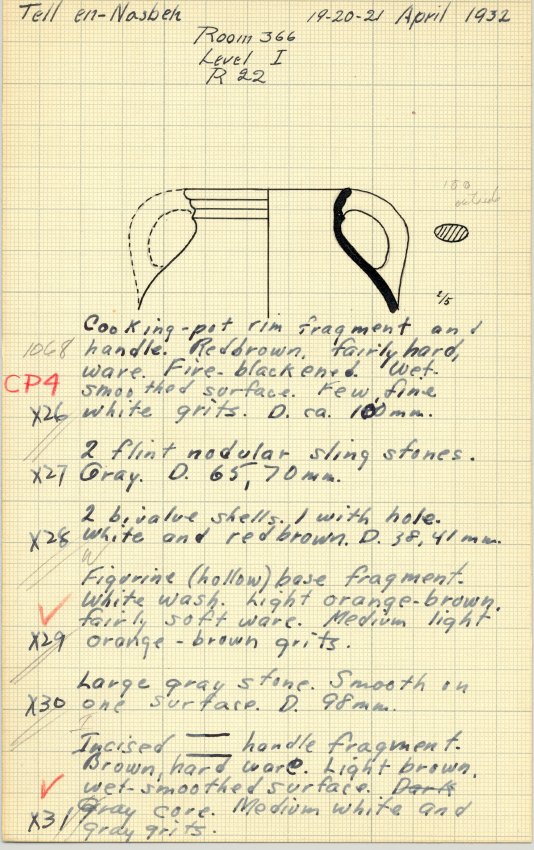 Tell en-Nasbeh 19-20-21 April 1932
Room 366
Level I
R 22
180
outside
2/5
Cooking-pot rim fragment and
1068 handle. Redbrown, fairly hard,
ware. Fire-blackened. Wet-
CP4 smoothed surface. Few, fine
X26 white grits. D. ca. 100 mm.
2 flint nodular sling stones.
X27 Gray. D. 65, 70 mm.
2 bivalve shells. 1 with hole.
X28 White and redbrown. D. 38, 41 mm.
W
Figurine (hollow) base fragment.
White wash. Light orange-brown,
fairly soft ware. Medium light
X29 orange-brown grits.
Large gray stone. Smooth on
X30 one surface. D. 98 mm.
I
Incised handle fragment.
Brown, hard ware. Light brown,
wet-smoothed surface. Dark
X31 Gray core. Medium white and
gray grits.